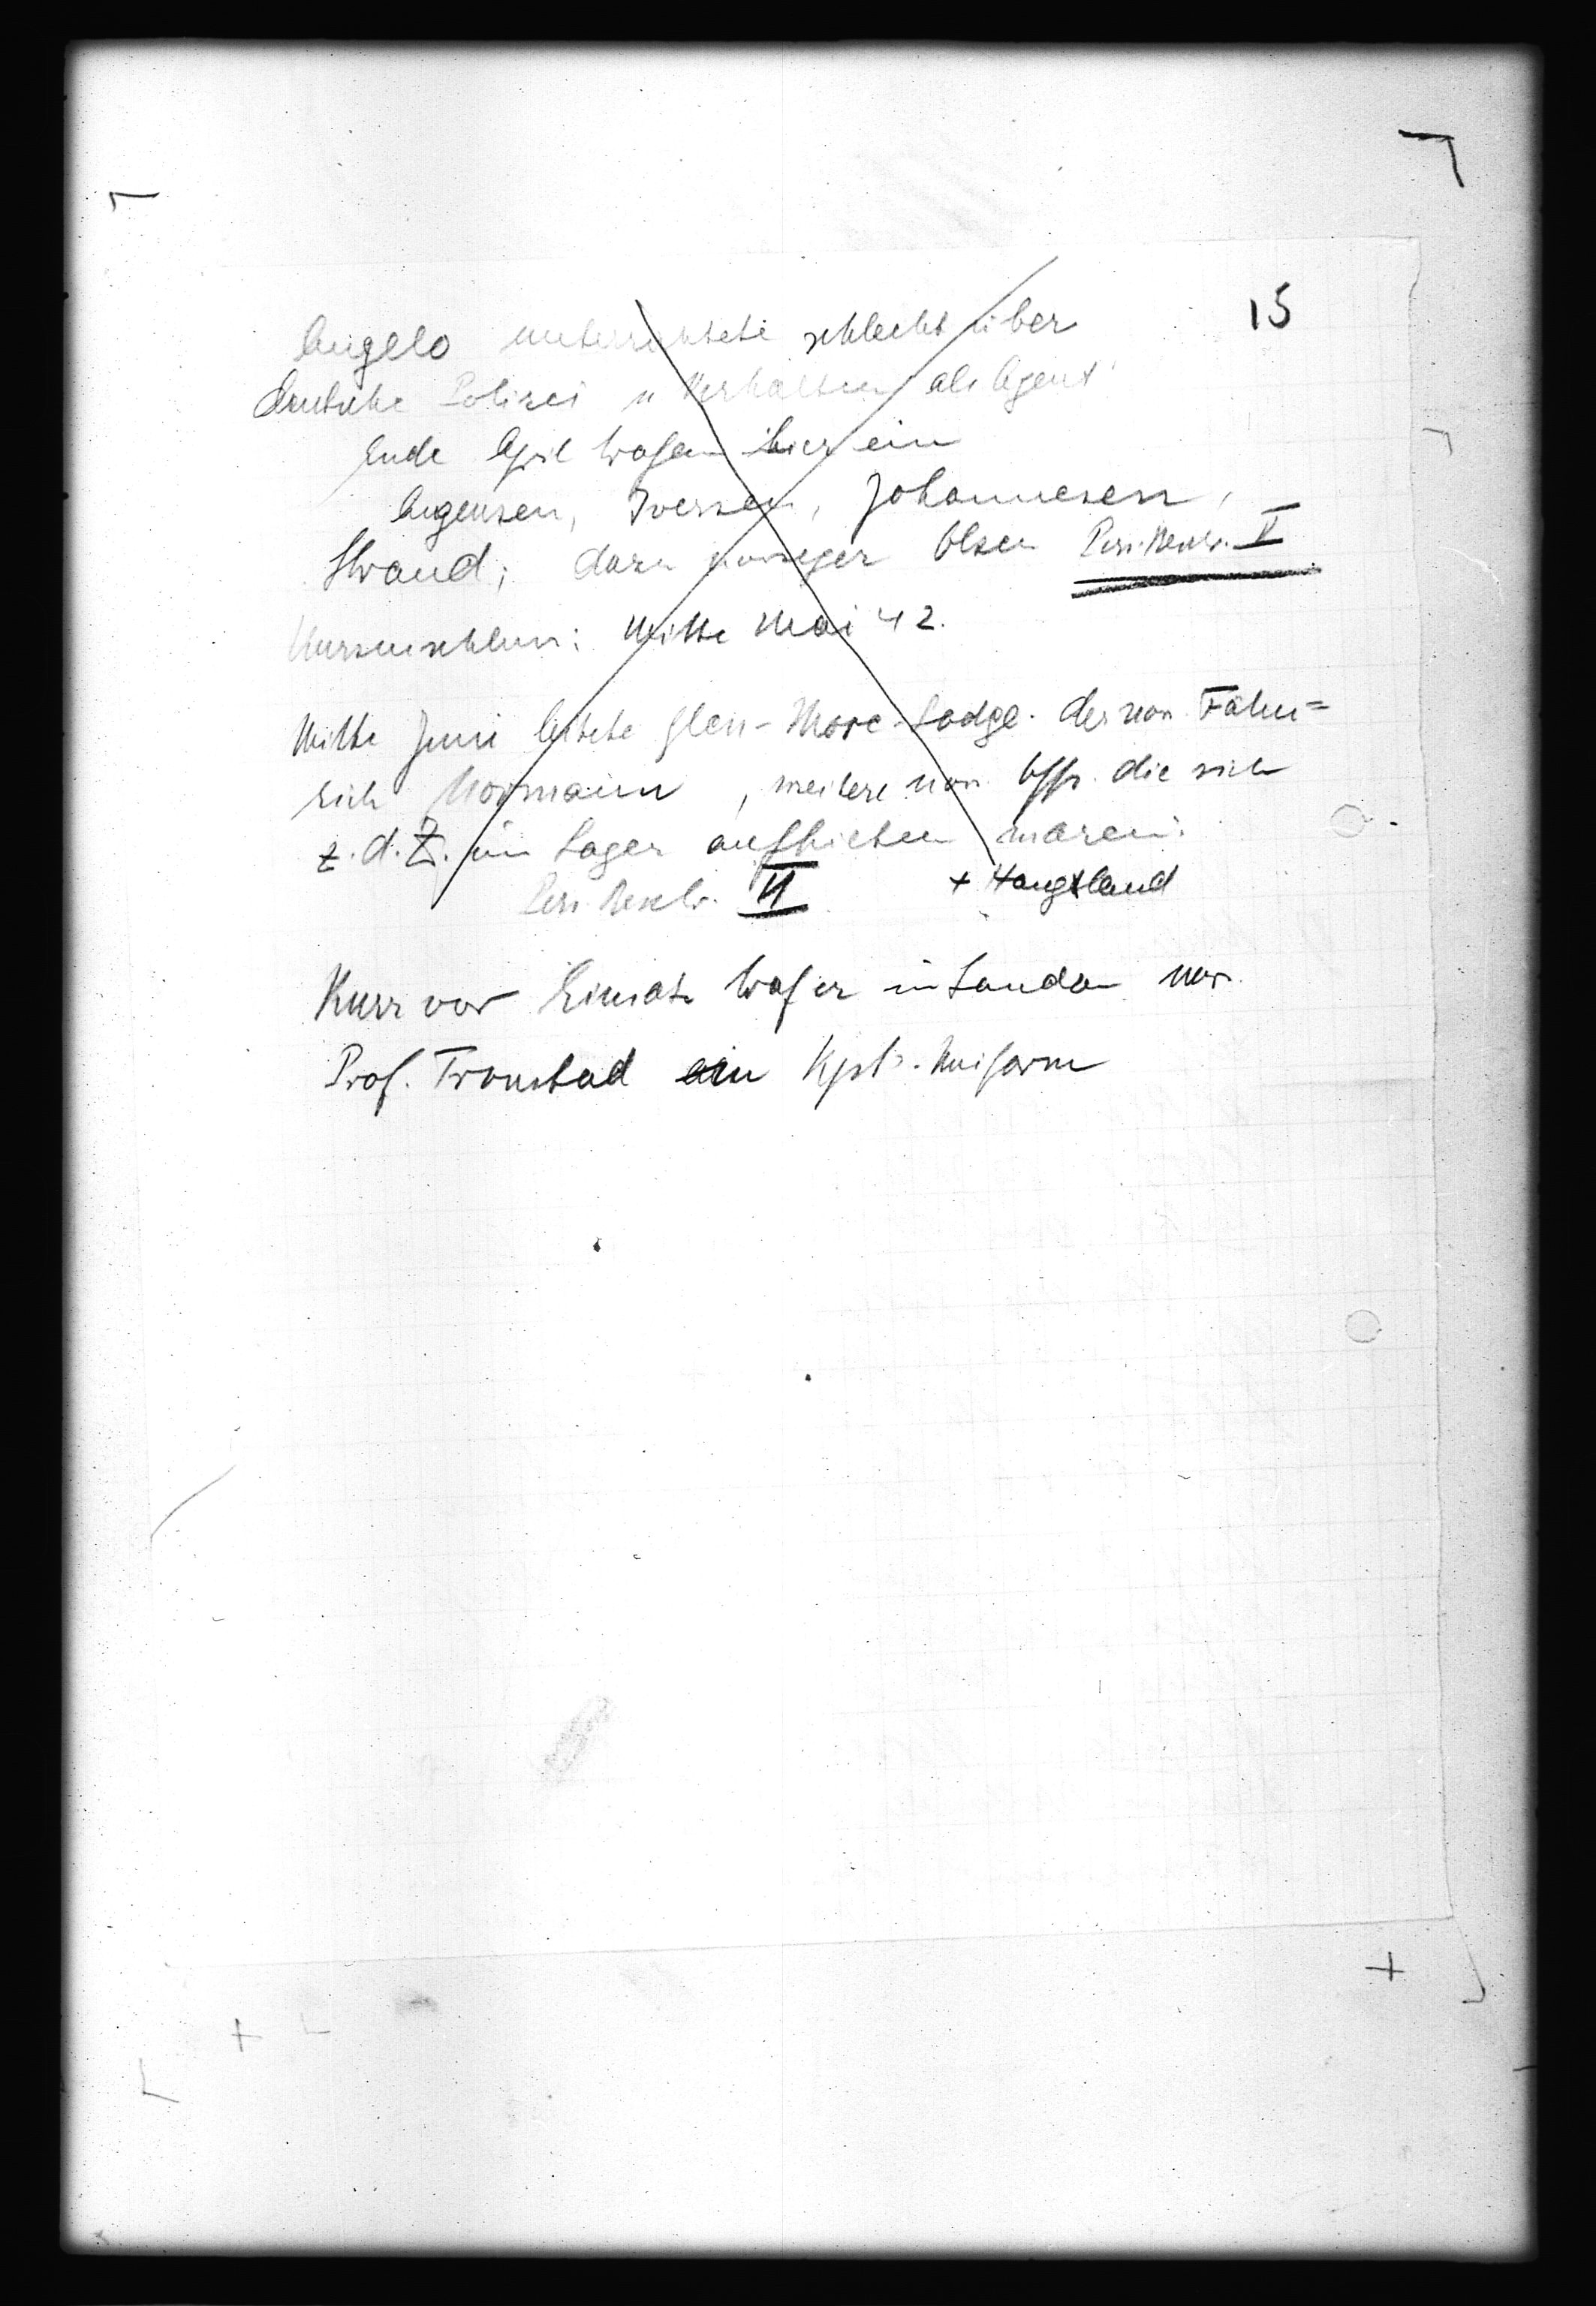 15
Angelo unterrichtete schlecht über
deutsche Polizei u Verhalten als Agent
Ende April trafen hier ein
Augensen, Iversen, Johannesen,
Strand; dazu Olsen Pers. Beschr. V
Kursusschluss: Mitte Mai 42.
Mitte Juni leitete Glen-More-Lodge der nor. Fähn=
rich Normann, weitere nor. Offz. die sich
z. d. Z. im Lager aufhielten waren:
Pers. Beschr. VI + Haugsland
Kurz vor Einsatz traf er in London nor.
Prof. Tronstad in Kpt.-Uniform